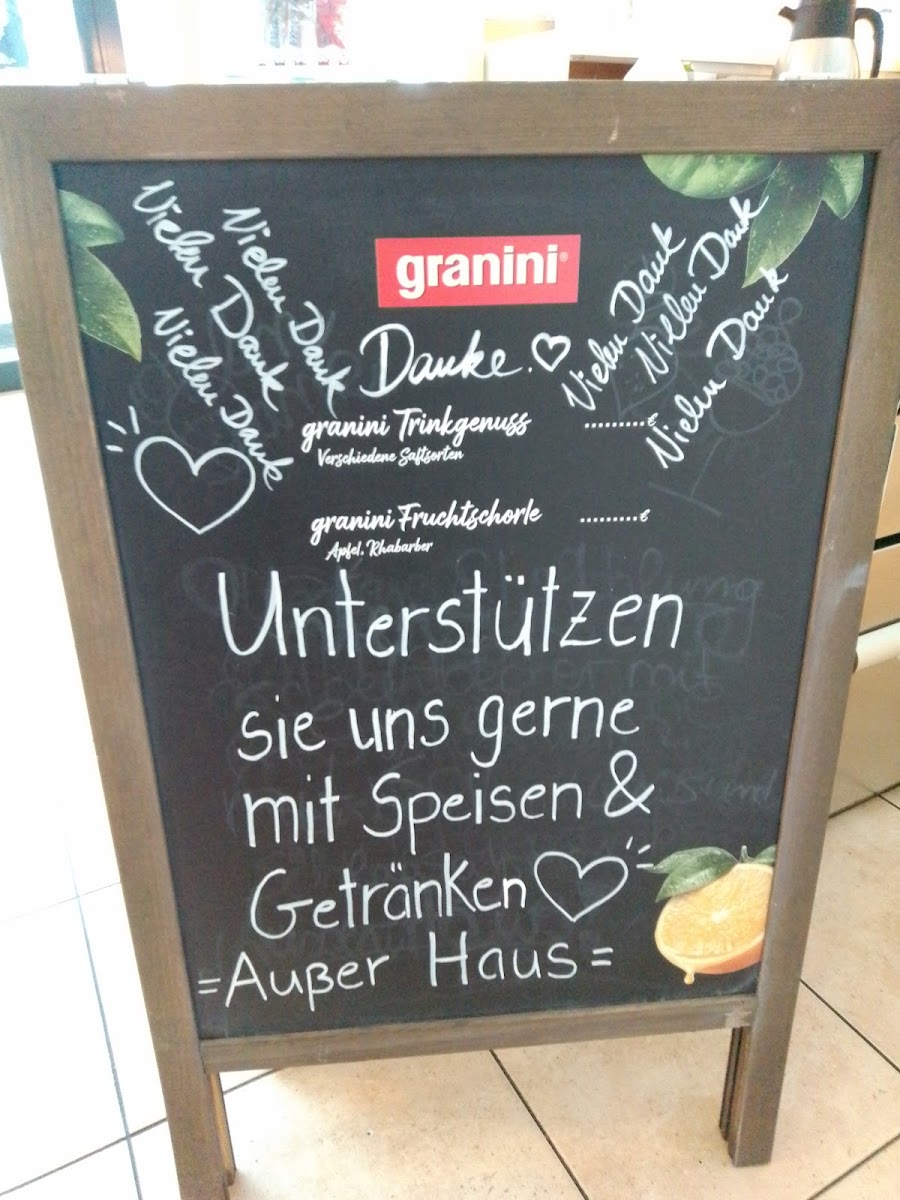 Vielen Dank
Vielen Dank
Vielen Dank
granini®
Danke.
Vielen Dank
Vielen Dank
Vielen Dank
granini Trinkgenuss .........€
Verschiedene Saftsorten
granini Fruchtschorle .........€
Apfel, Rhabarber
Unterstützen
sie uns gerne
mit Speisen &
Getränken
=Außer Haus=